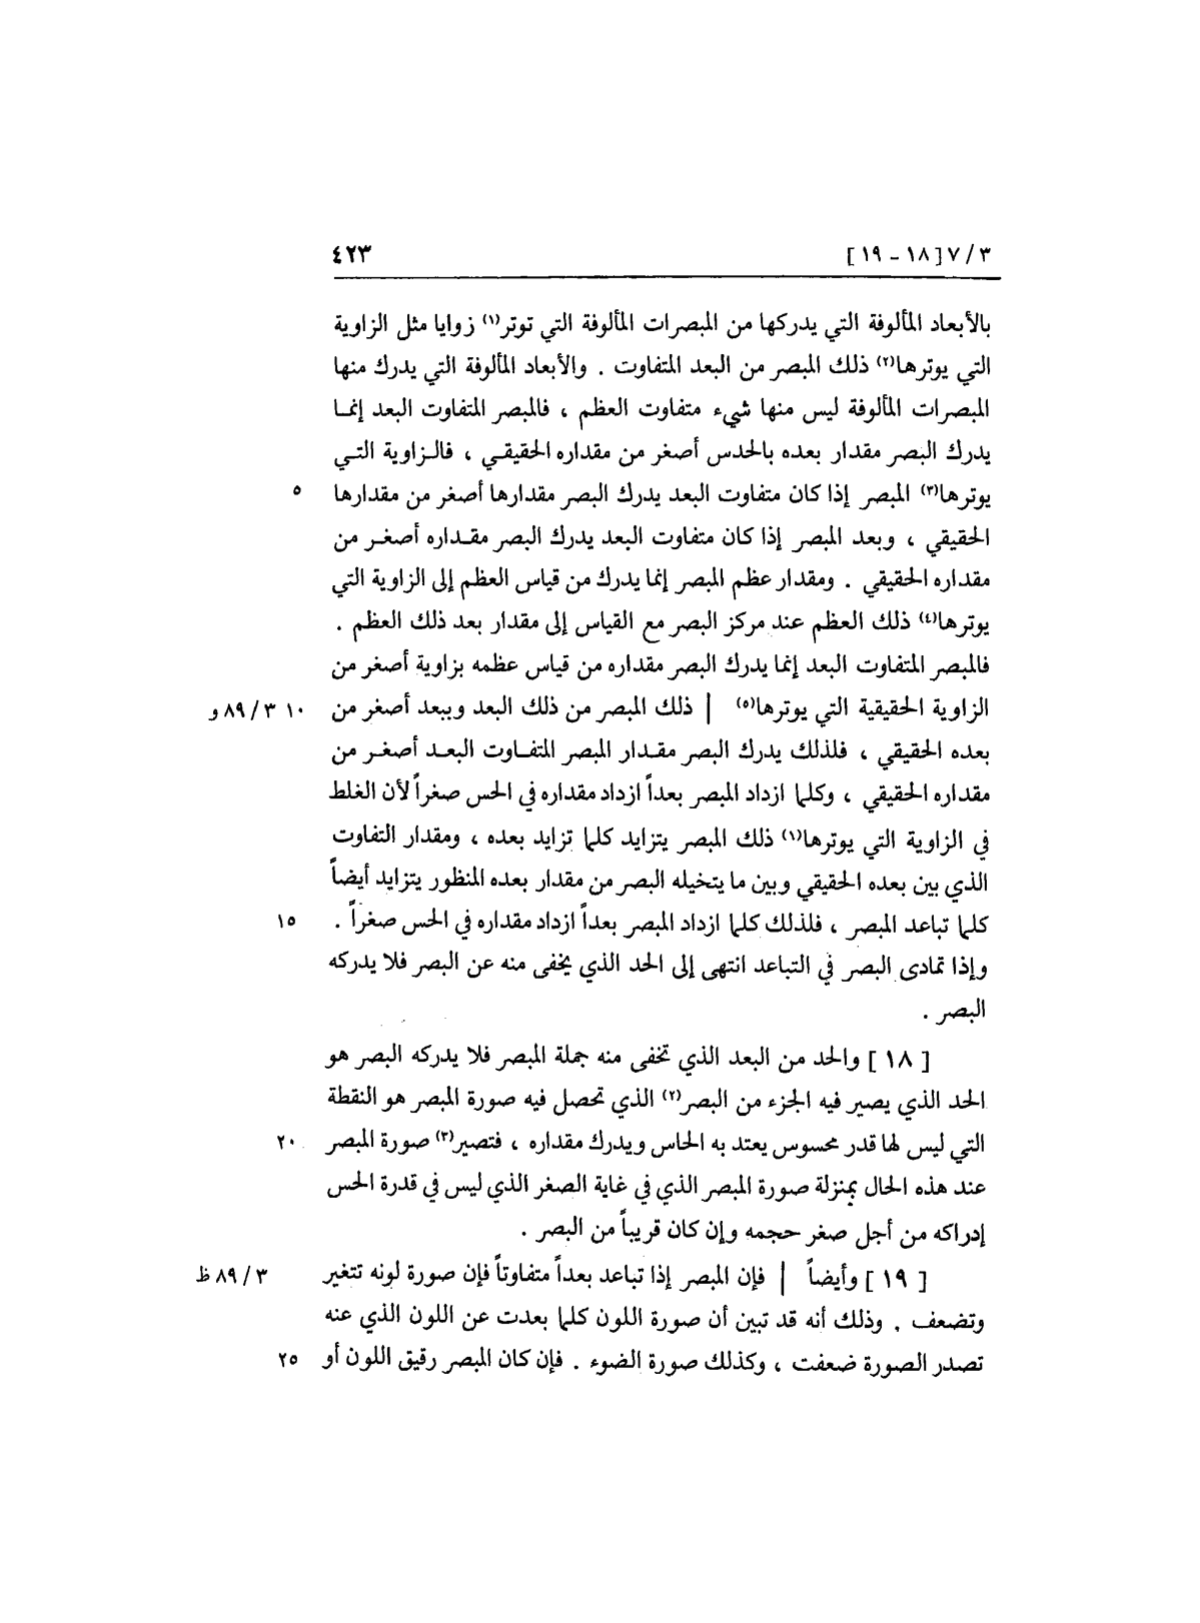 ٣ / ٧ [ ١٨ - ١٩ ] ٤٢٣
بالأبعاد المألوفة التي يدركها من المبصرات المألوفة التي توتر(١) زوايا مثل الزاوية
التي يوترها(٢) ذلك المبصر من البعد المتفاوت . والأبعاد المألوفة التي يدرك منها
المبصرات المألوفة ليس منها شيء متفاوت العظم ، فالمبصر المتفاوت البعد إنما
يدرك البصر مقدار بعده بالحدس أصغر من مقداره الحقيقي ، فالزاوية التي
يوترها(٣) المبصر إذا كان متفاوت البعد يدرك البصر مقدارها أصغر من مقدارها ٥
الحقيقي ، وبعد المبصر إذا كان متفاوت البعد يدرك البصر مقداره أصغر من
مقداره الحقيقي . ومقدار عظم المبصر إنما يدرك من قياس العظم إلى الزاوية التي
يوترها(٤) ذلك العظم عند مركز البصر مع القياس إلى مقدار بعد ذلك العظم .
فالمبصر المتفاوت البعد إنما يدرك البصر مقداره من قياس عظمه بزاوية أصغر من
الزاوية الحقيقية التي يوترها(٥) | ذلك المبصر من ذلك البعد وببعد أصغر من ١٠ ٣ / ٨٩ و
بعده الحقيقي ، فلذلك يدرك البصر مقدار المبصر المتفاوت البعد أصغر من
مقداره الحقيقي ، وكلما ازداد المبصر بعداً ازداد مقداره في الحس صغراً لأن الغلط
في الزاوية التي يوترها(١) ذلك المبصر يتزايد كلما تزايد بعده ، ومقدار التفاوت
الذي بين بعده الحقيقي وبين ما يتخيله البصر من مقدار بعده المنظور يتزايد أيضاً
كلما تباعد المبصر ، فلذلك كلما ازداد المبصر بعداً ازداد مقداره في الحس صغراً . ١٥
وإذا تمادى البصر في التباعد انتهى إلى الحد الذي يخفى منه عن البصر فلا يدركه
البصر .
[ ١٨ ] والحد من البعد الذي تخفى منه جملة المبصر فلا يدركه البصر هو
الحد الذي يصير فيه الجزء من البصر(٢) الذي تحصل فيه صورة المبصر هو النقطة
التي ليس لها قدر محسوس يعتد به الحاس ويدرك مقداره ، فتصير(٣) صورة المبصر ٢٠
عند هذه الحال بمنزلة صورة المبصر الذي في غاية الصغر الذي ليس في قدرة الحس
إدراكه من أجل صغر حجمه وإن كان قريباً من البصر .
[ ١٩ ] وأيضاً | فإن المبصر إذا تباعد بعداً متفاوتاً فإن صورة لونه تتغير ٣ / ٨٩ ظ
وتضعف . وذلك أنه قد تبين أن صورة اللون كلما بعدت عن اللون الذي عنه
تصدر الصورة ضعفت ، وكذلك صورة الضوء . فإن كان المبصر رقيق اللون أو ٢٥